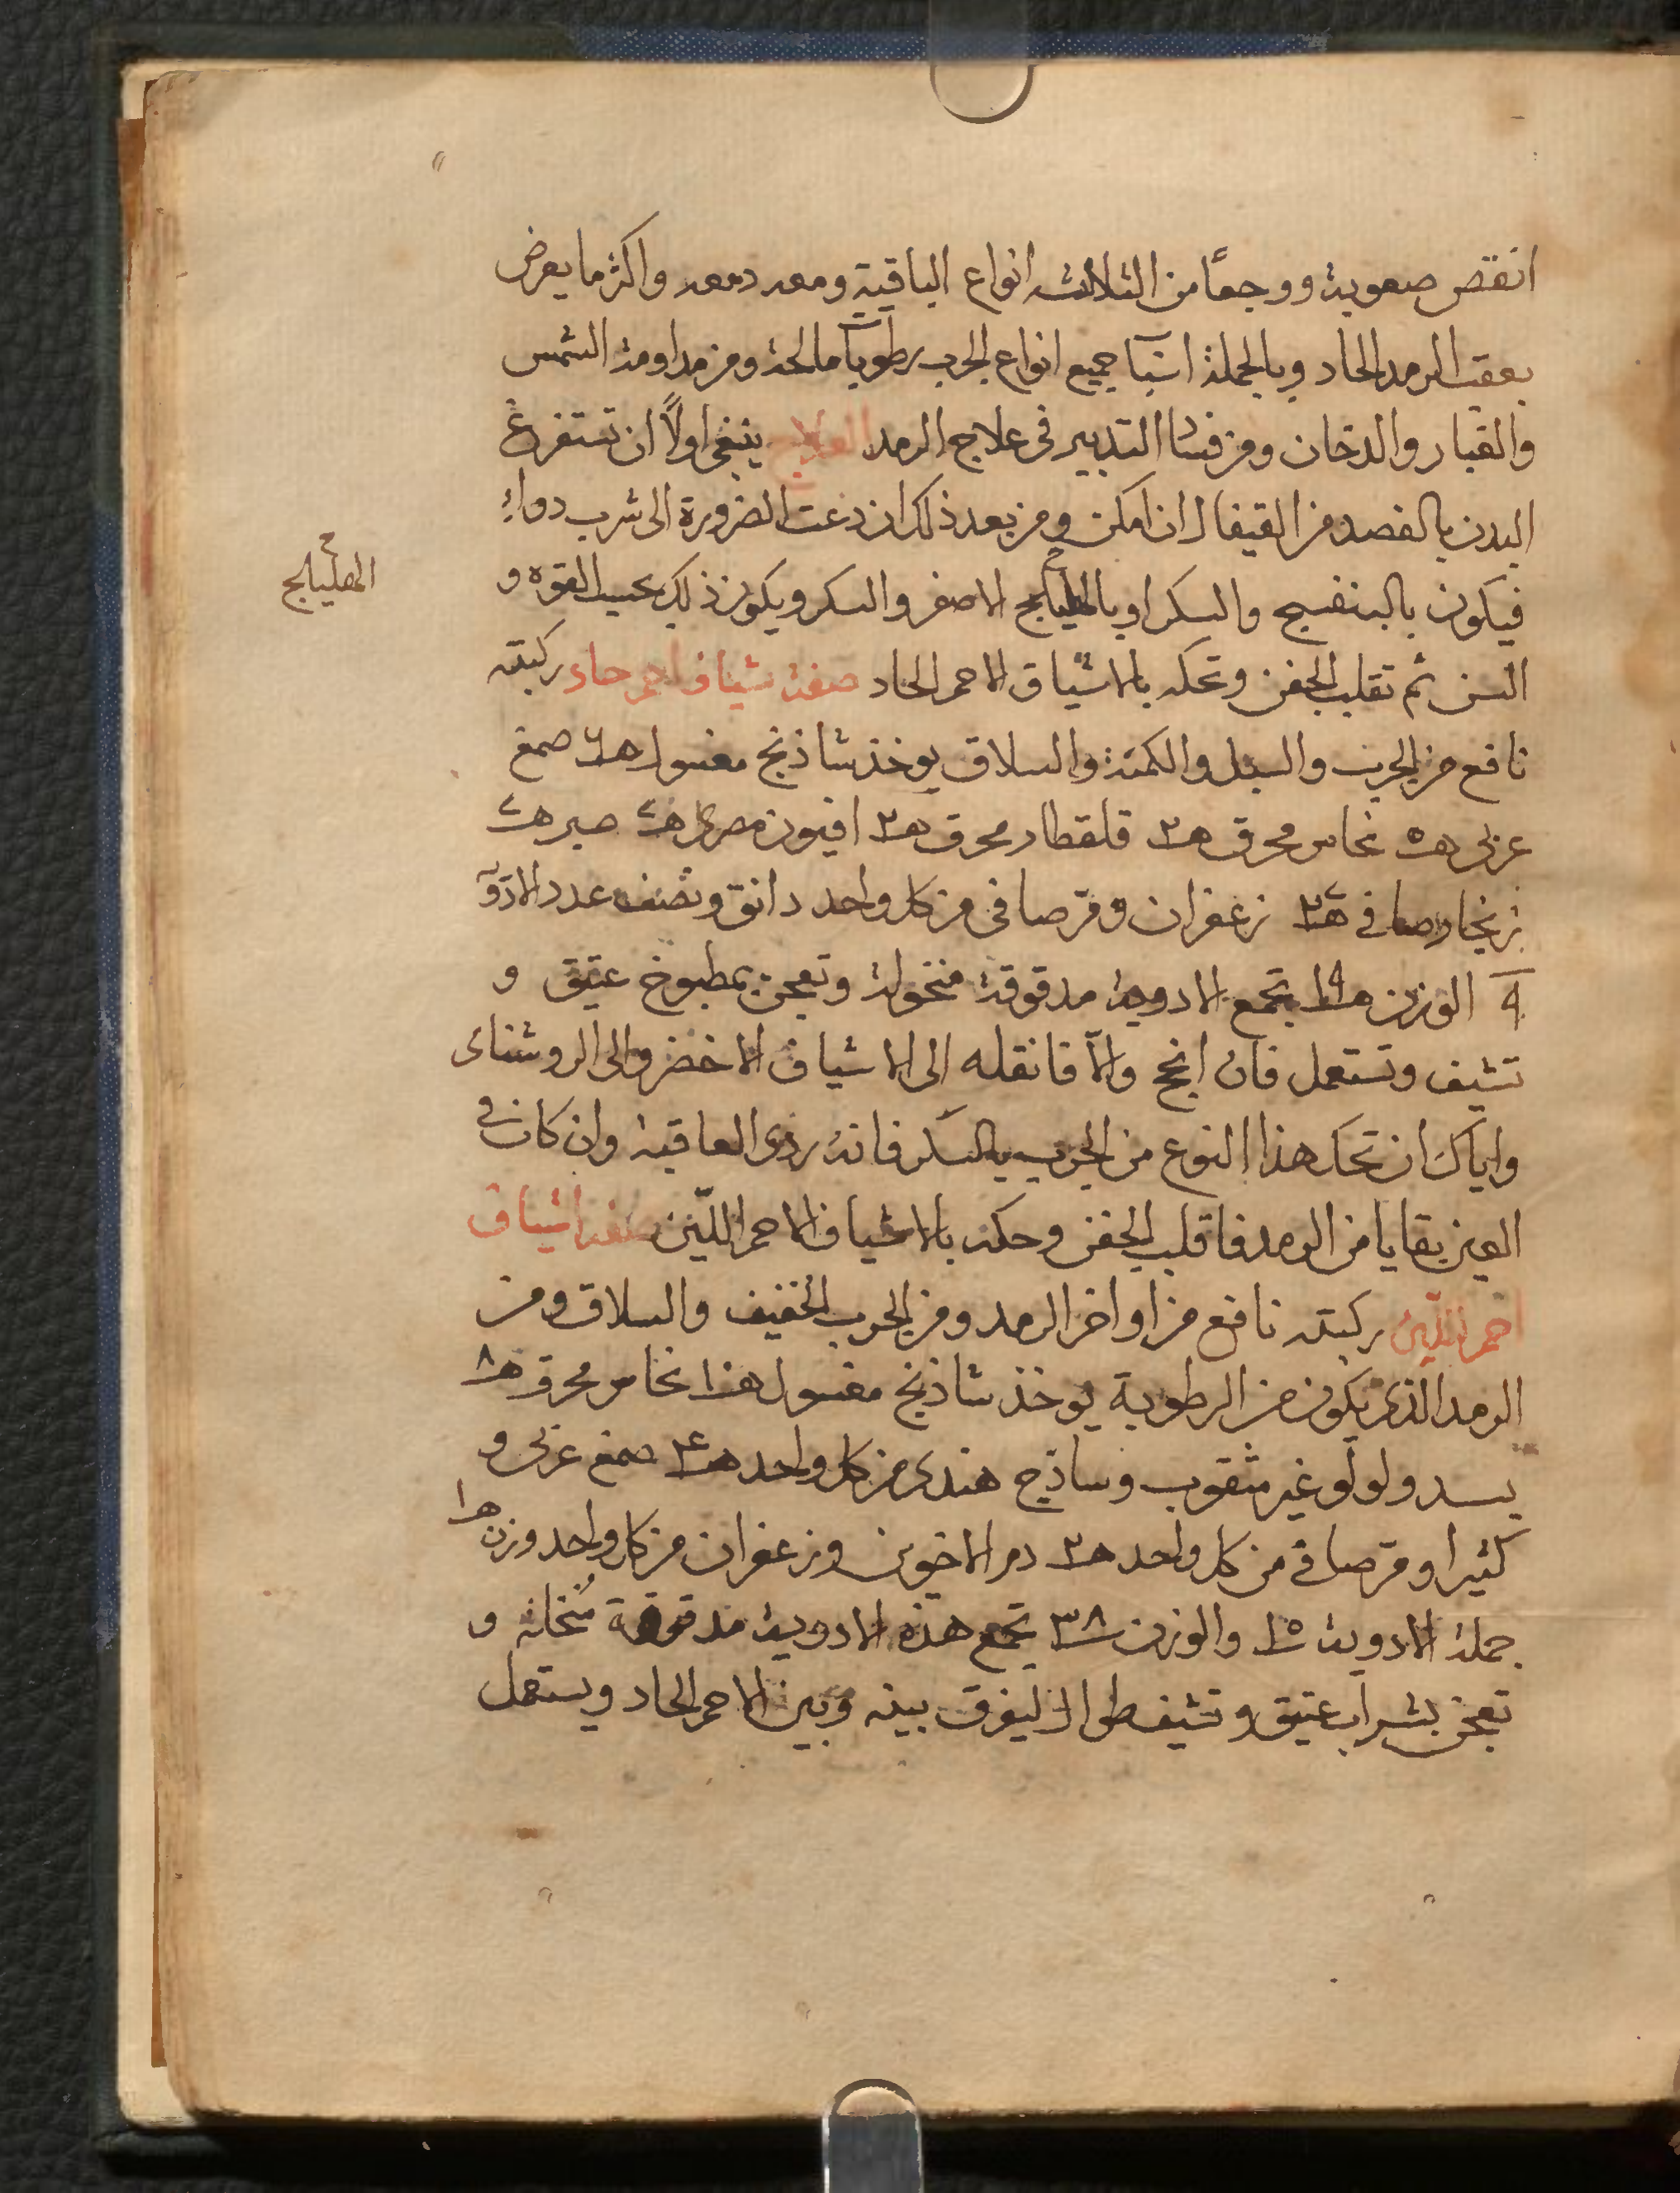 انقص صعوبة ووجعًا من الثلاثه انواع الباقية ومعه دمعه واكثر ما يعرض
بعقب الرمد الحاد وبالجملة اسبآ جميع انواع الجرب رطوبآ مالحة ومن مداومة الشمس
والغبار والدخان ومن فساد التدبير فى علاج الرمد العلاج ينبغى اولًا ان تستفرغ
البدن بالفصد من القيفال ان امكن ومن بعد ذلك ان دعت الضرورة الى شرب دواءٍ
فيكون بالبنفسج والسكر او بالهليلج الاصفر والسكر ويكون ذلك بحسب القوه و
الهليلج
السن ثم تقلب الجفن وتحكه بالاشياف الاحمر الحاد صفة شياف احمر حاد ركبته
نافع من الجرب والسبل والكمتة والسلاق يوخذ شاذنج مغسول صمغ
عربى نحاس محرق قلقطار محرق افيون مصرى صبر
زنجار صافى زعفران ومر صافى من كل واحد دانق ونصف عدد الادوٓ
٩ الوزن تجمع الادوية مدقوقة منخولة وتعجن بمطبوخ عتيق و
تشيف وتستعمل فان انجح والّا فانقله الى الاشياف الاخضر والى الروشناى
واياك ان تحك هذا النوع من الجرب بالسكر فانه ردى العاقبة وان كان فى
العين بقايا من الرمد فاقلب الجفن وحكه بالاشياف الاحمر اللّين صفة اشياف
احمر لّين ركبته نافع من اواخر الرمد ومن الجرب الخفيف والسلاق ومن
الرمد الذى يكون من الرطوبة يوخذ شاذنج مغسول نحاس محرق
بسد ولولو غير مثقوب وساذج هندى من كل واحد صمغ عربى و
كثيرا ومر صافى من كل واحد دم الاخوين وزعفران من كل واحد وزن
جملة الادوية والوزن تجمع هذه الادوية مدقوقة مُنخلة و
تعجن بشراب عتيق وتشيف طوالا ليفرق بينه وبين الاحمر الحاد ويستعمل